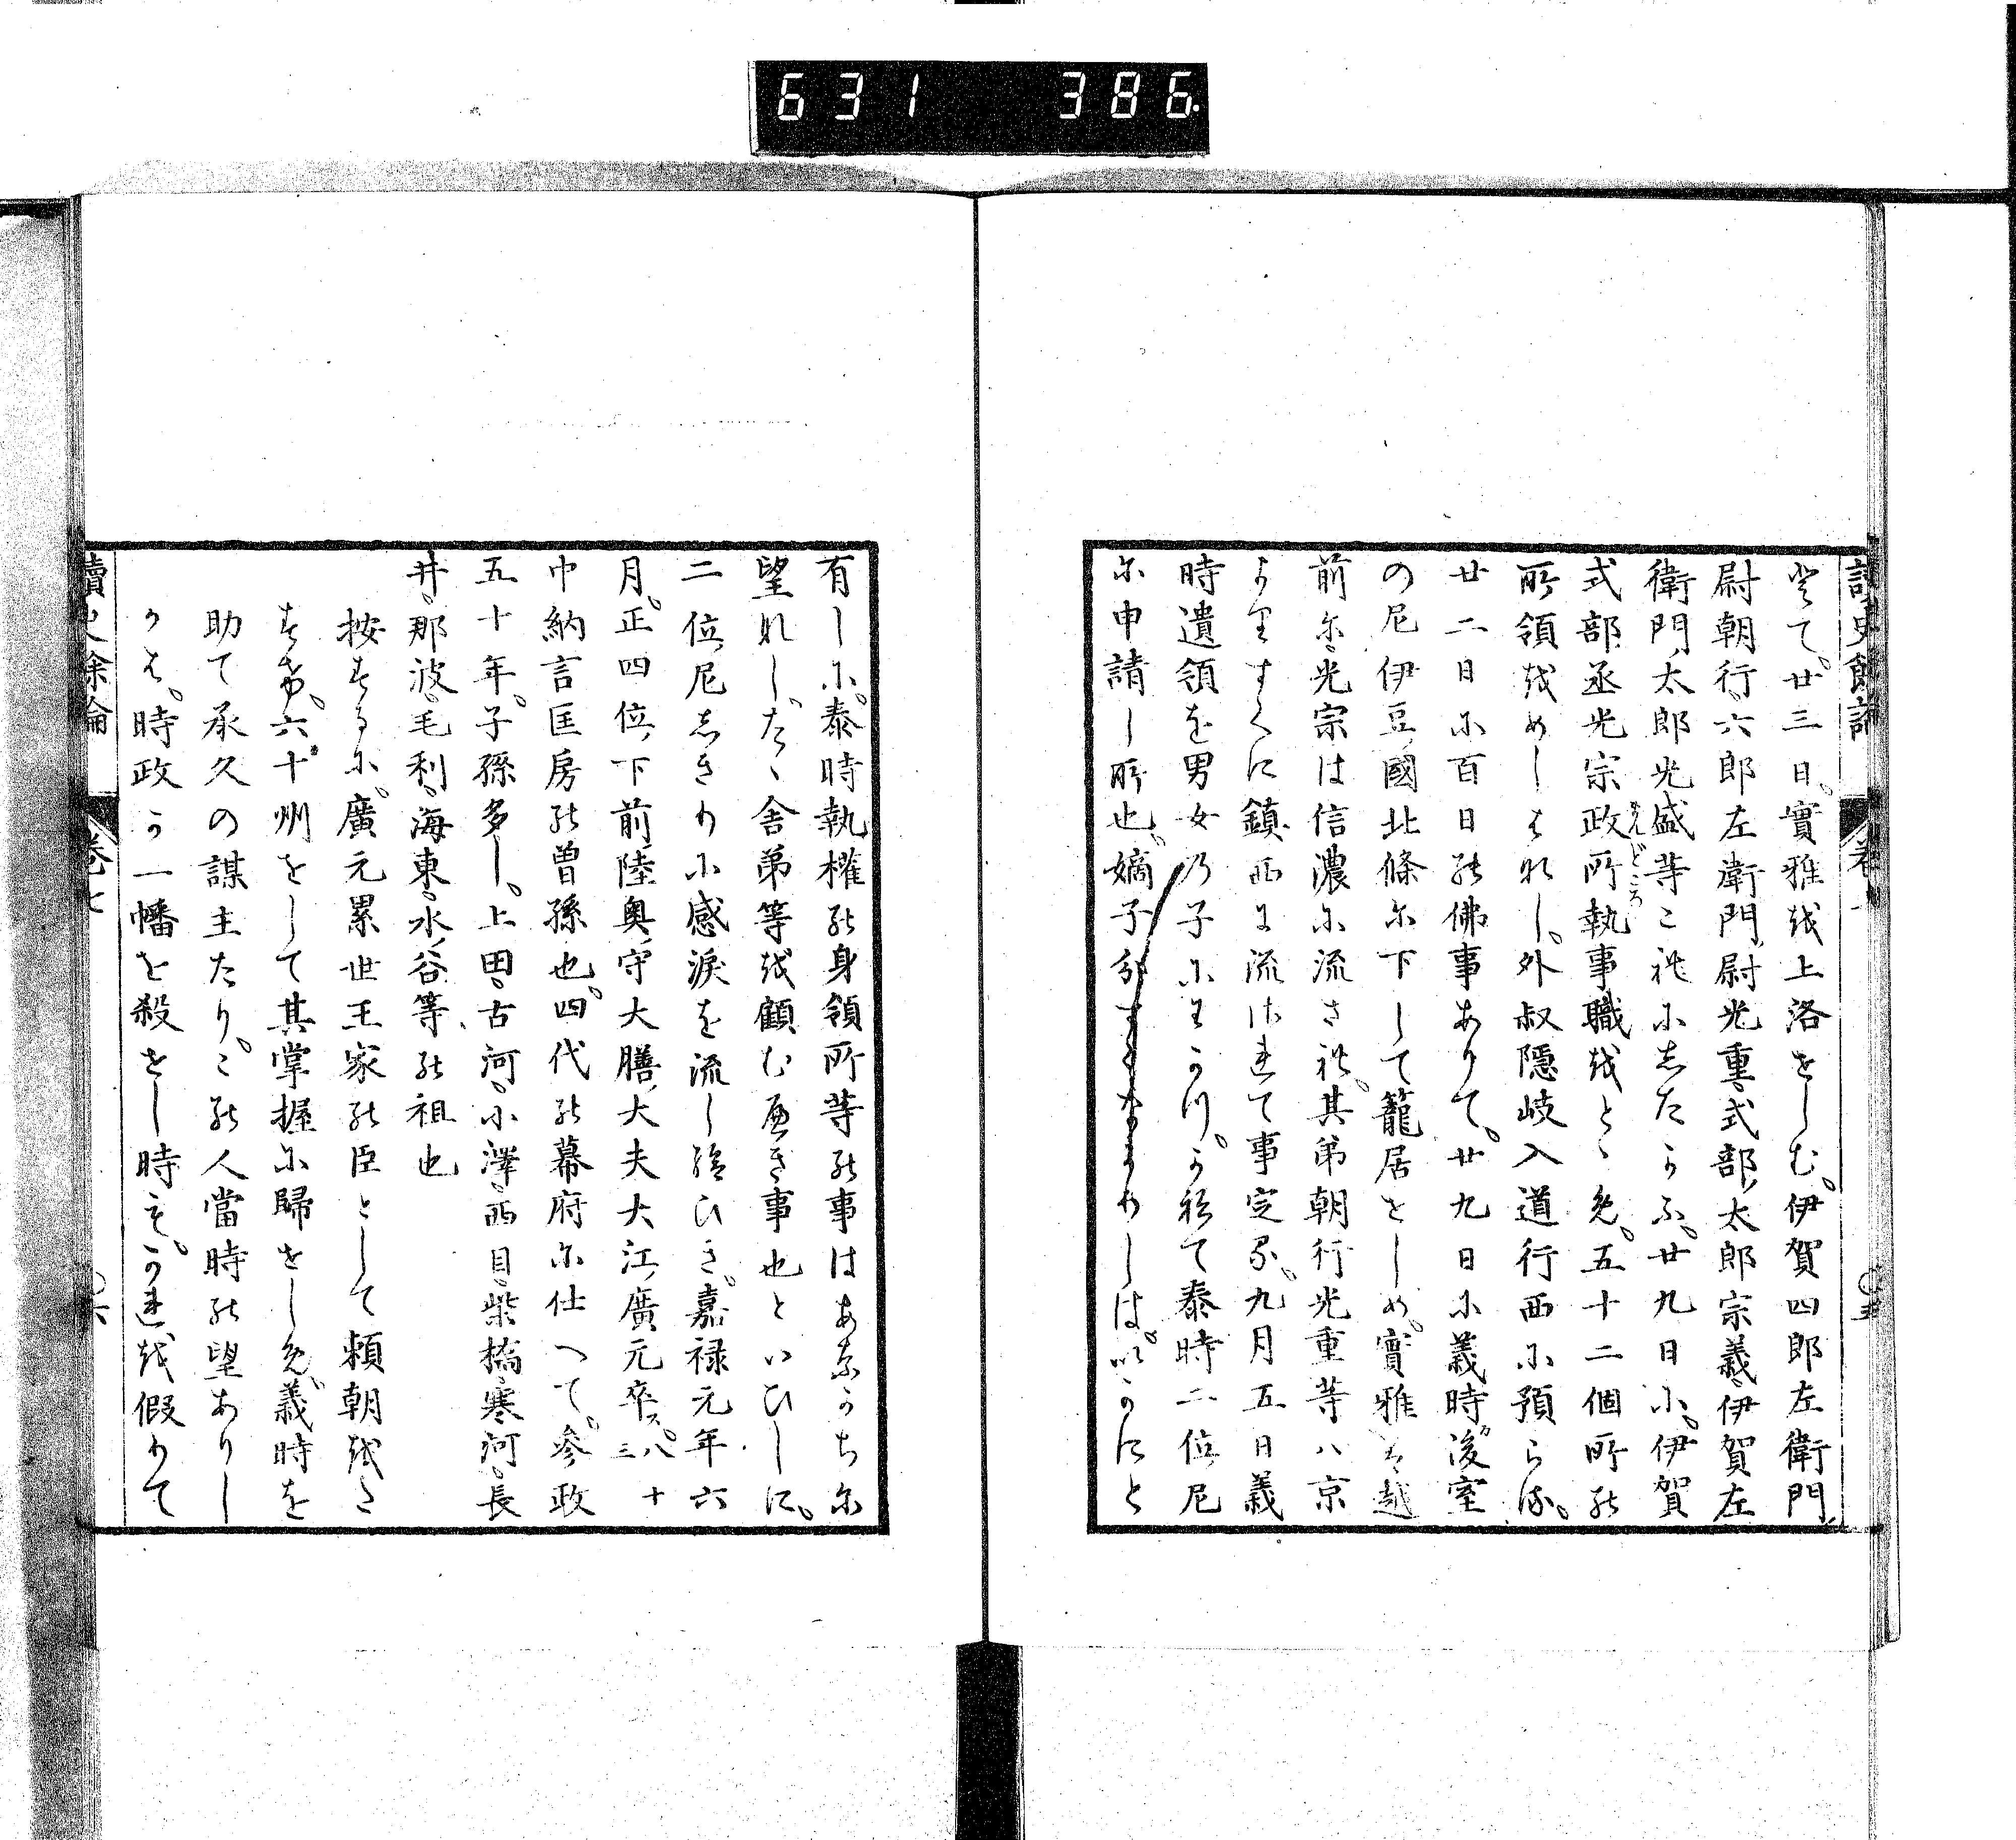 631 386
讀史餘論 卷七 〇五
とて。廿三日。實雅を上洛せしむ。伊賀四郎左衛門
尉朝行、六郎左衛門尉光重、式部太郎宗義、伊賀左
衛門太郎光盛等これにしたかふ。廿九日に。伊賀
式部丞光宗政所執事職をとゝめ。五十二個所の
まんどころ
所領をめしはなし。外叔隱岐入道行西に預らる。
廿二日に百日の佛事ありて。廿九日に義時カ後室
の尼伊豆國北條に下して籠居せしめ。實雅は越
前に。光宗は信濃に流さる。其弟朝行光重等ハ京
よりすくに鎮西に流されて事定る。九月五日義
時遺領を男女乃子にわかつ。かねて泰時二位尼
に申請し所也。嫡子分すくなかりしは。いかにと
有しに。泰時執權の身領所等の事はあなかちに
望なし。たゝ舎弟等を顧むへき事也といひしに。
二位尼しきりに感涙を流し給ひき。嘉禄元年六
月。正四位下前陸奥守大膳大夫大江廣元卒ス。八十三
中納言匡房の曽孫也。四代の幕府に仕へて。参政
五十年。子孫多し。上田、古河、小澤、西目、柴橋、寒河、長
井、那波、毛利、海東、水谷等の祖也
按するに。廣元累世王家の臣として頼朝をた
すけ。六十州をして其掌握に歸せしめ。義時を
助て承久の謀主たり。この人當時の望ありし
かは。時政か一幡を殺せし時も。かれを假りて
讀史餘論 卷七 〇六